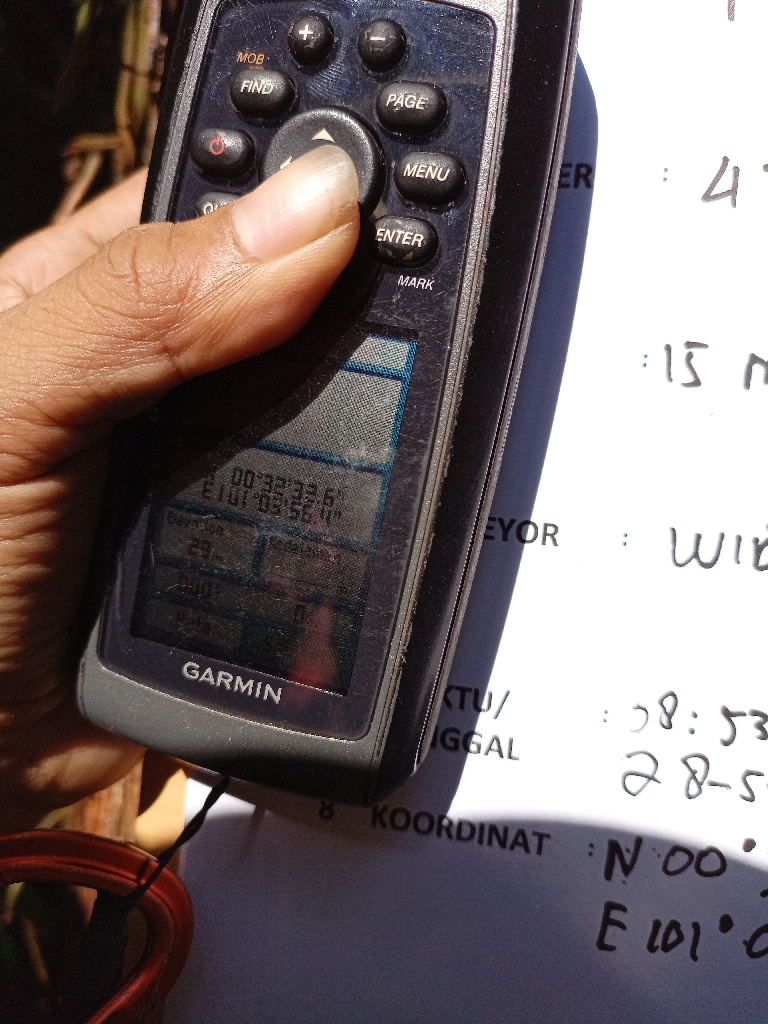 + -
MOB
FIND PAGE
MENU
ENTER
MARK
00°32'33.6"
E101°03'56.1"
29
GARMIN
ER : 4
: 15
EYOR : WIB
KTU/ : 08:53
NGGAL 28-5-
8 KOORDINAT : N 00°
E 101°0